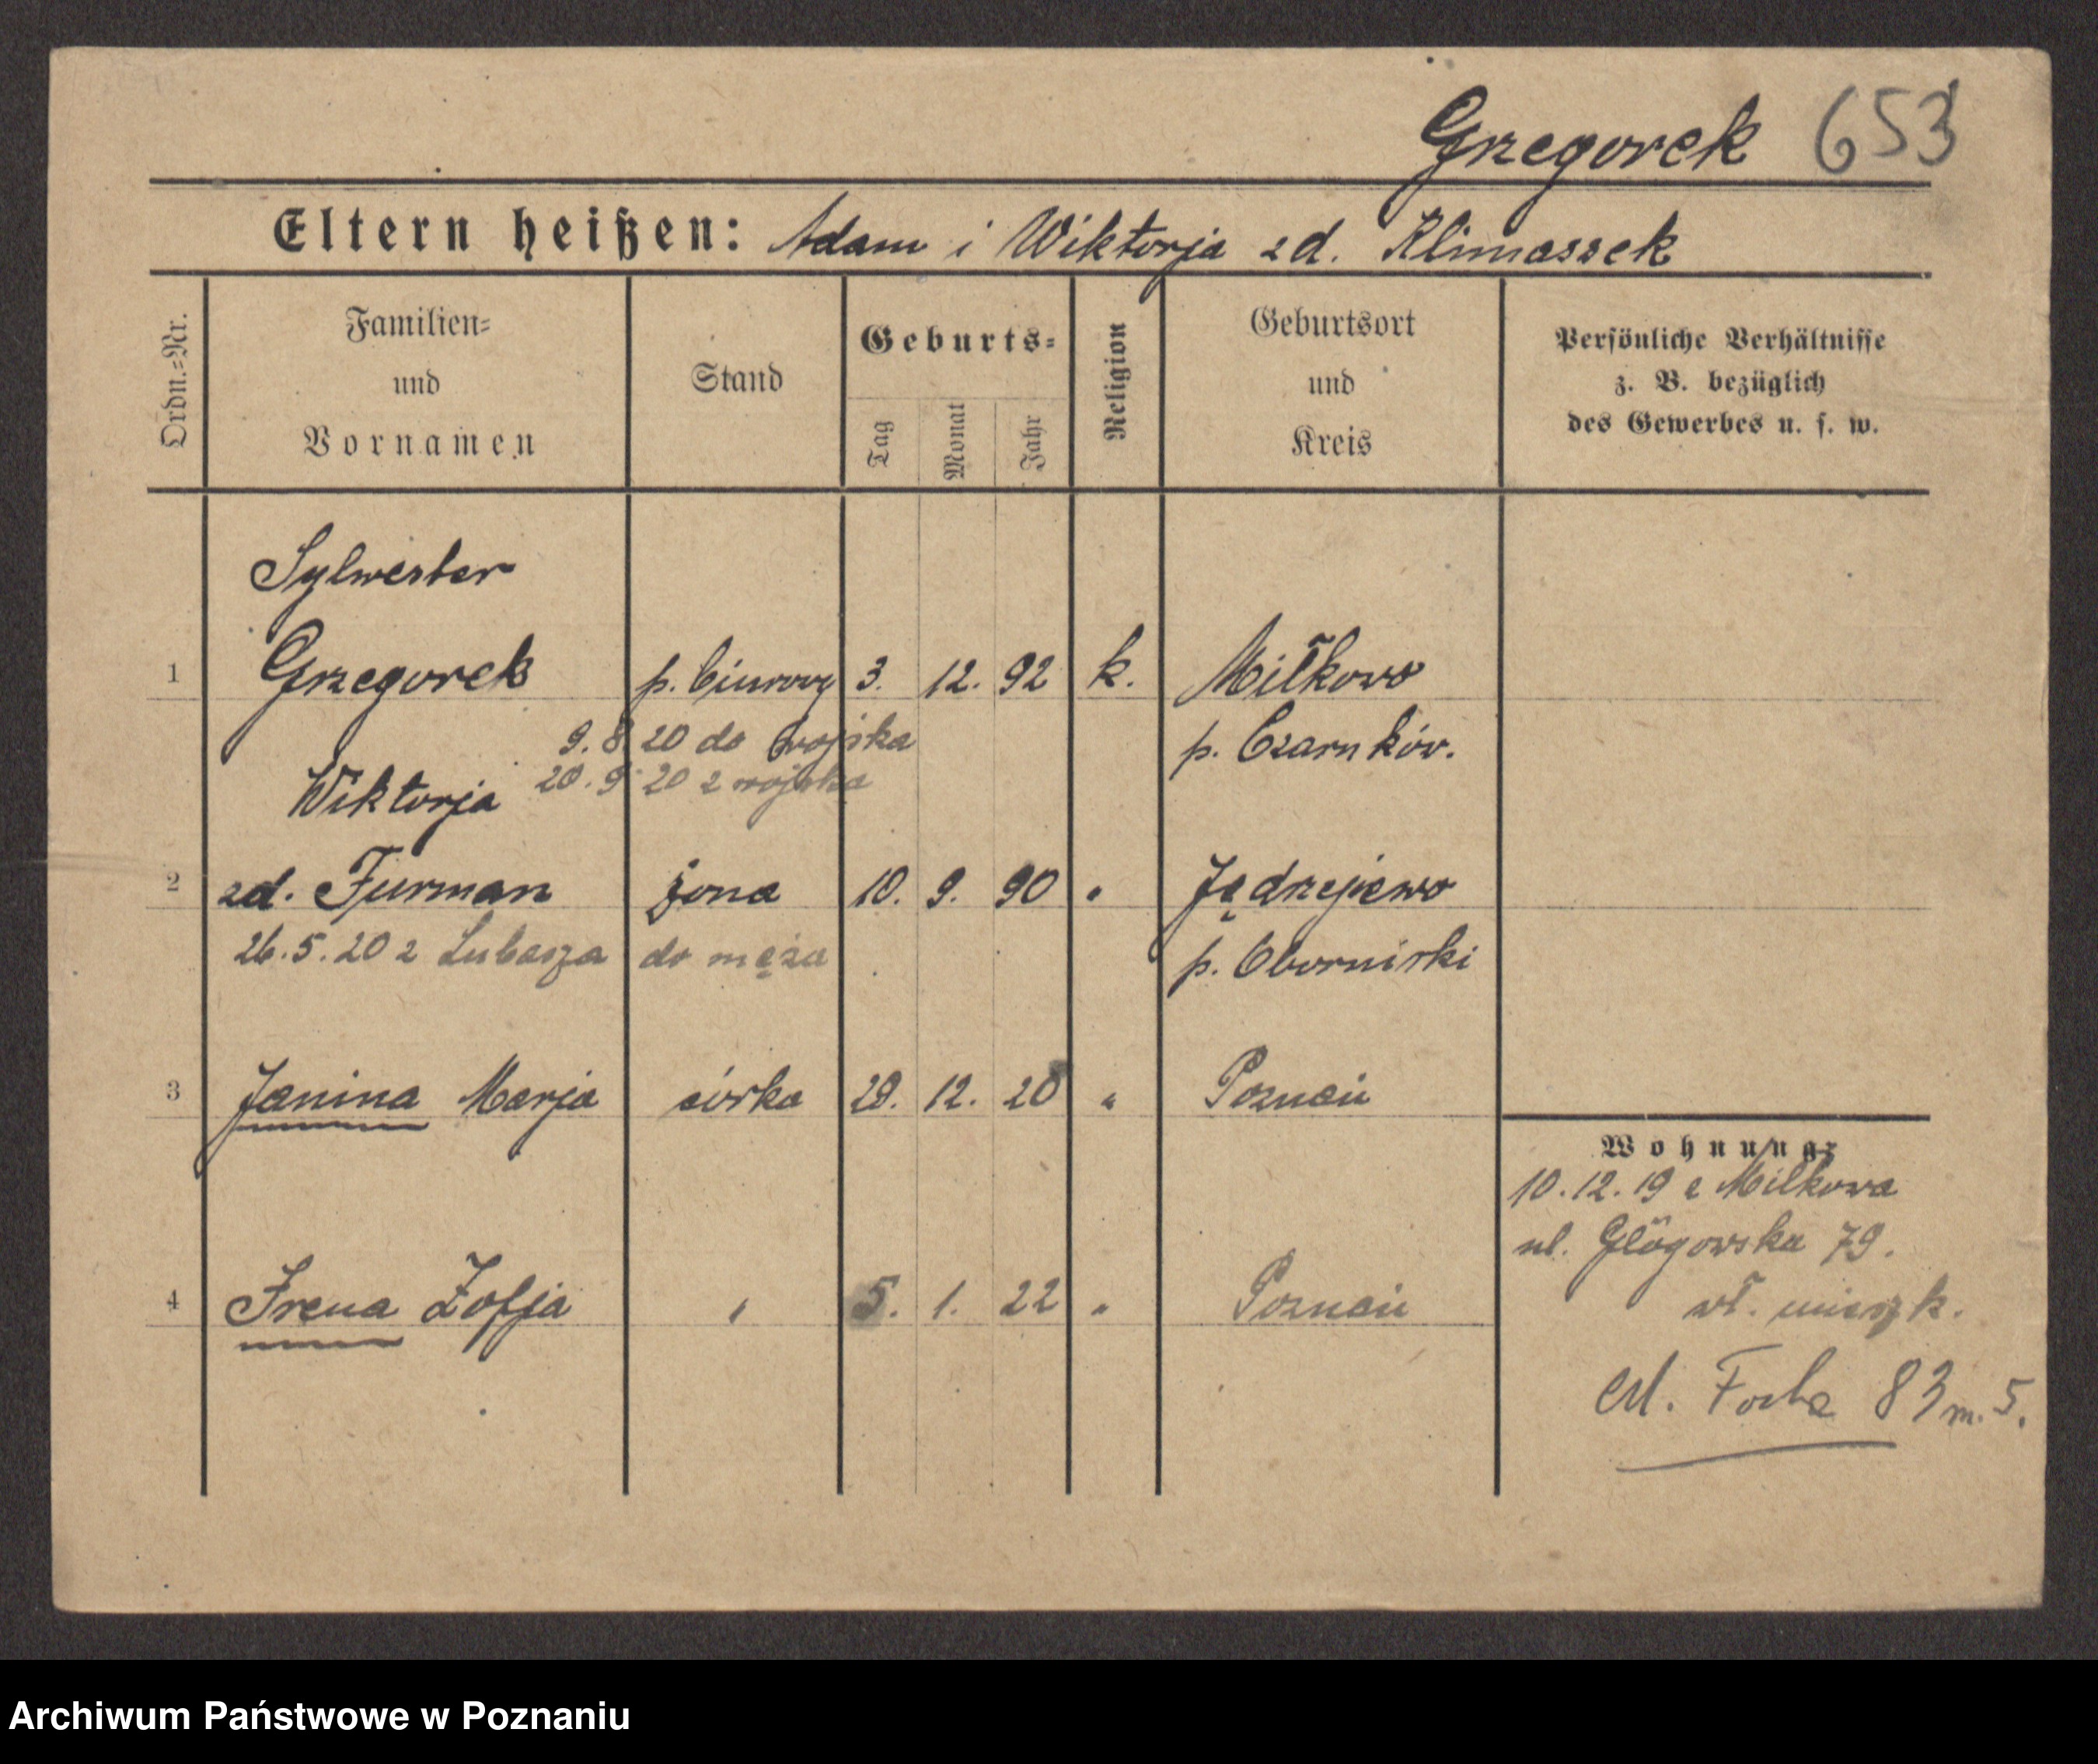 Grzegorek 653
Eltern heißen: Adam i Wiktorja zd. Klimassek
Ordn.-Nr.
Familien-
und
Vornamen
Stand
Geburts-
Tag
Monat
Jahr
Religion
Geburtsort
und
Kreis
Persönliche Verhältnisse
z. B. bezüglich
des Gewerbes u. s. w.
Sylwester
1 Grzegorek p. biurowy 3. 12. 92 k. Miłkowo
9. 8 20 do wojska p. Czarnków.
20. 9 20 z wojska
Wiktorja
2 zd. Furman żona 10. 9. 90 " Jędrzejewo
26. 5. 20 z Lubasza do męża p. Obornicki
3 Janina Marja córka 20. 12. 20 " Poznań
4 Irena Zofja " 5. 1. 22 " Poznań
Wohnung:
10. 12. 19 z Miłkowa
ul. Głogowska 79.
wł. mieszk.
ul. Focha 83 m. 5.
Archiwum Państwowe w Poznaniu